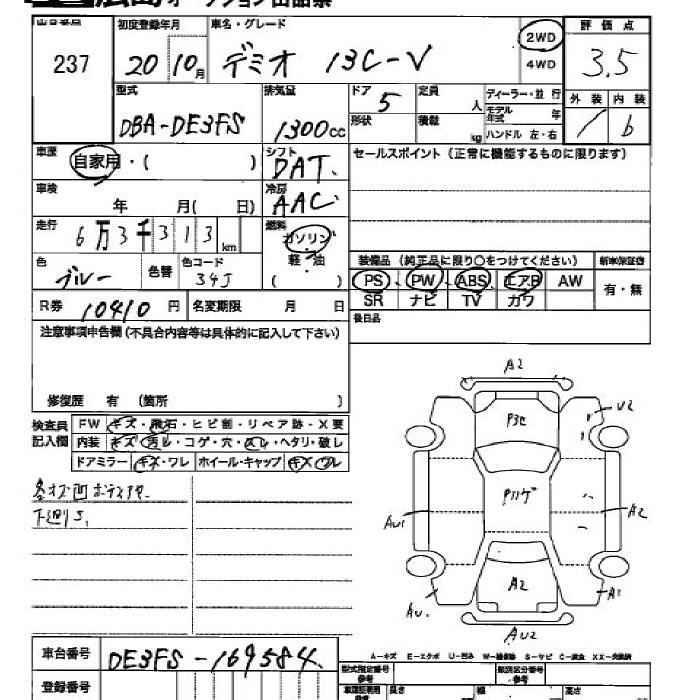 広島オークション出品票
出品番号 初度登録年月 車名・グレード 2WD 評価点
237 20 10月 デミオ 13C-V 4WD 3.5
型式 排気量 ドア 5 定員 人 ディーラー・並行 外装 内装
DBA-DE3FS 1300cc 形状 積載 kg モデル年式 年 ハンドル 左・右 b
車歴 自家用・( ) シフト DAT. セールスポイント (正常に機能するものに限ります)
車検 年 月( 日) 冷房 AAC
走行 6万3千313km 燃料 ガソリン
軽・油
色 ブルー 色替 色コード 34J ( )
装備品 (純正品に限り○をつけてください) 新車保証書
PS PW ABS エアB AW 有・無
SR ナビ TV カワ
R券 10410円 名変期限 月 日 後日品
注意事項申告欄(不具合内容等は具体的に記入して下さい)
修復歴 有 (箇所 )
検査員記入欄 FW キズ・飛石・ヒビ割・リペア跡・X要
内装 キズ・汚レ・コゲ・穴・スレ・ヘタリ・破レ
ドアミラー キズ・ワレ ホイール・キャップ キズ・ワレ
下廻りS,
A2
U2
AU1
A2
A2
A1
AU2
A-キズ E-エクボ U-凹み S-サビ
車台番号 DE3FS-169584
登録番号
型式指定番号 類別区分番号
長さ 幅 高さ